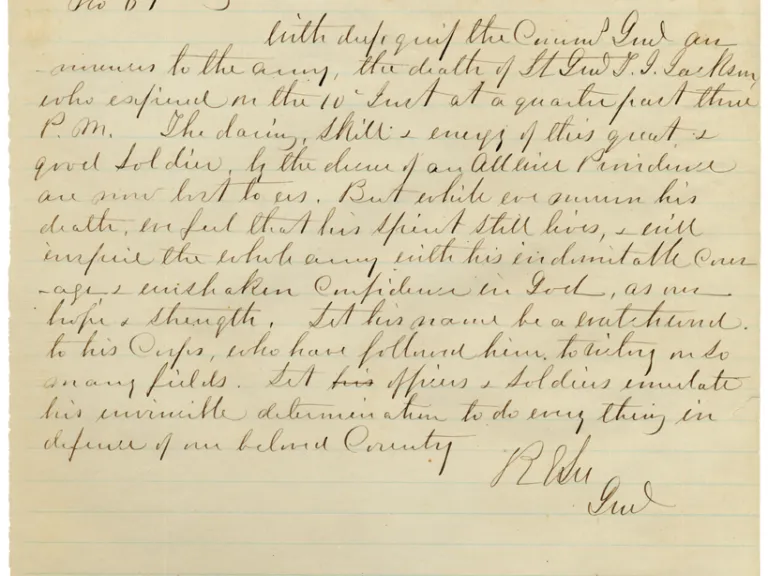 No 61
With deep grief the Comm'd Genl an
-nounces to the army, the death of Lt Genl T. J. Jackson,
who expired on the 10th Inst at a quarter past three
P. M. The daring, skill & energy of this great &
good soldier, by the decree of an All Wise Providence
are now lost to us. But while we mourn his
death, we feel that his spirit still lives, & will
inspire the whole army with his indomitable Cour
-age & unshaken Confidence in God, as our
hope & strength. Let his name be a watchword
to his Corps, who have followed him to victory on so
many fields. Let his officers & soldiers emulate
his invincible determination to do every thing in
defence of our beloved Country
R E Lee
Genl